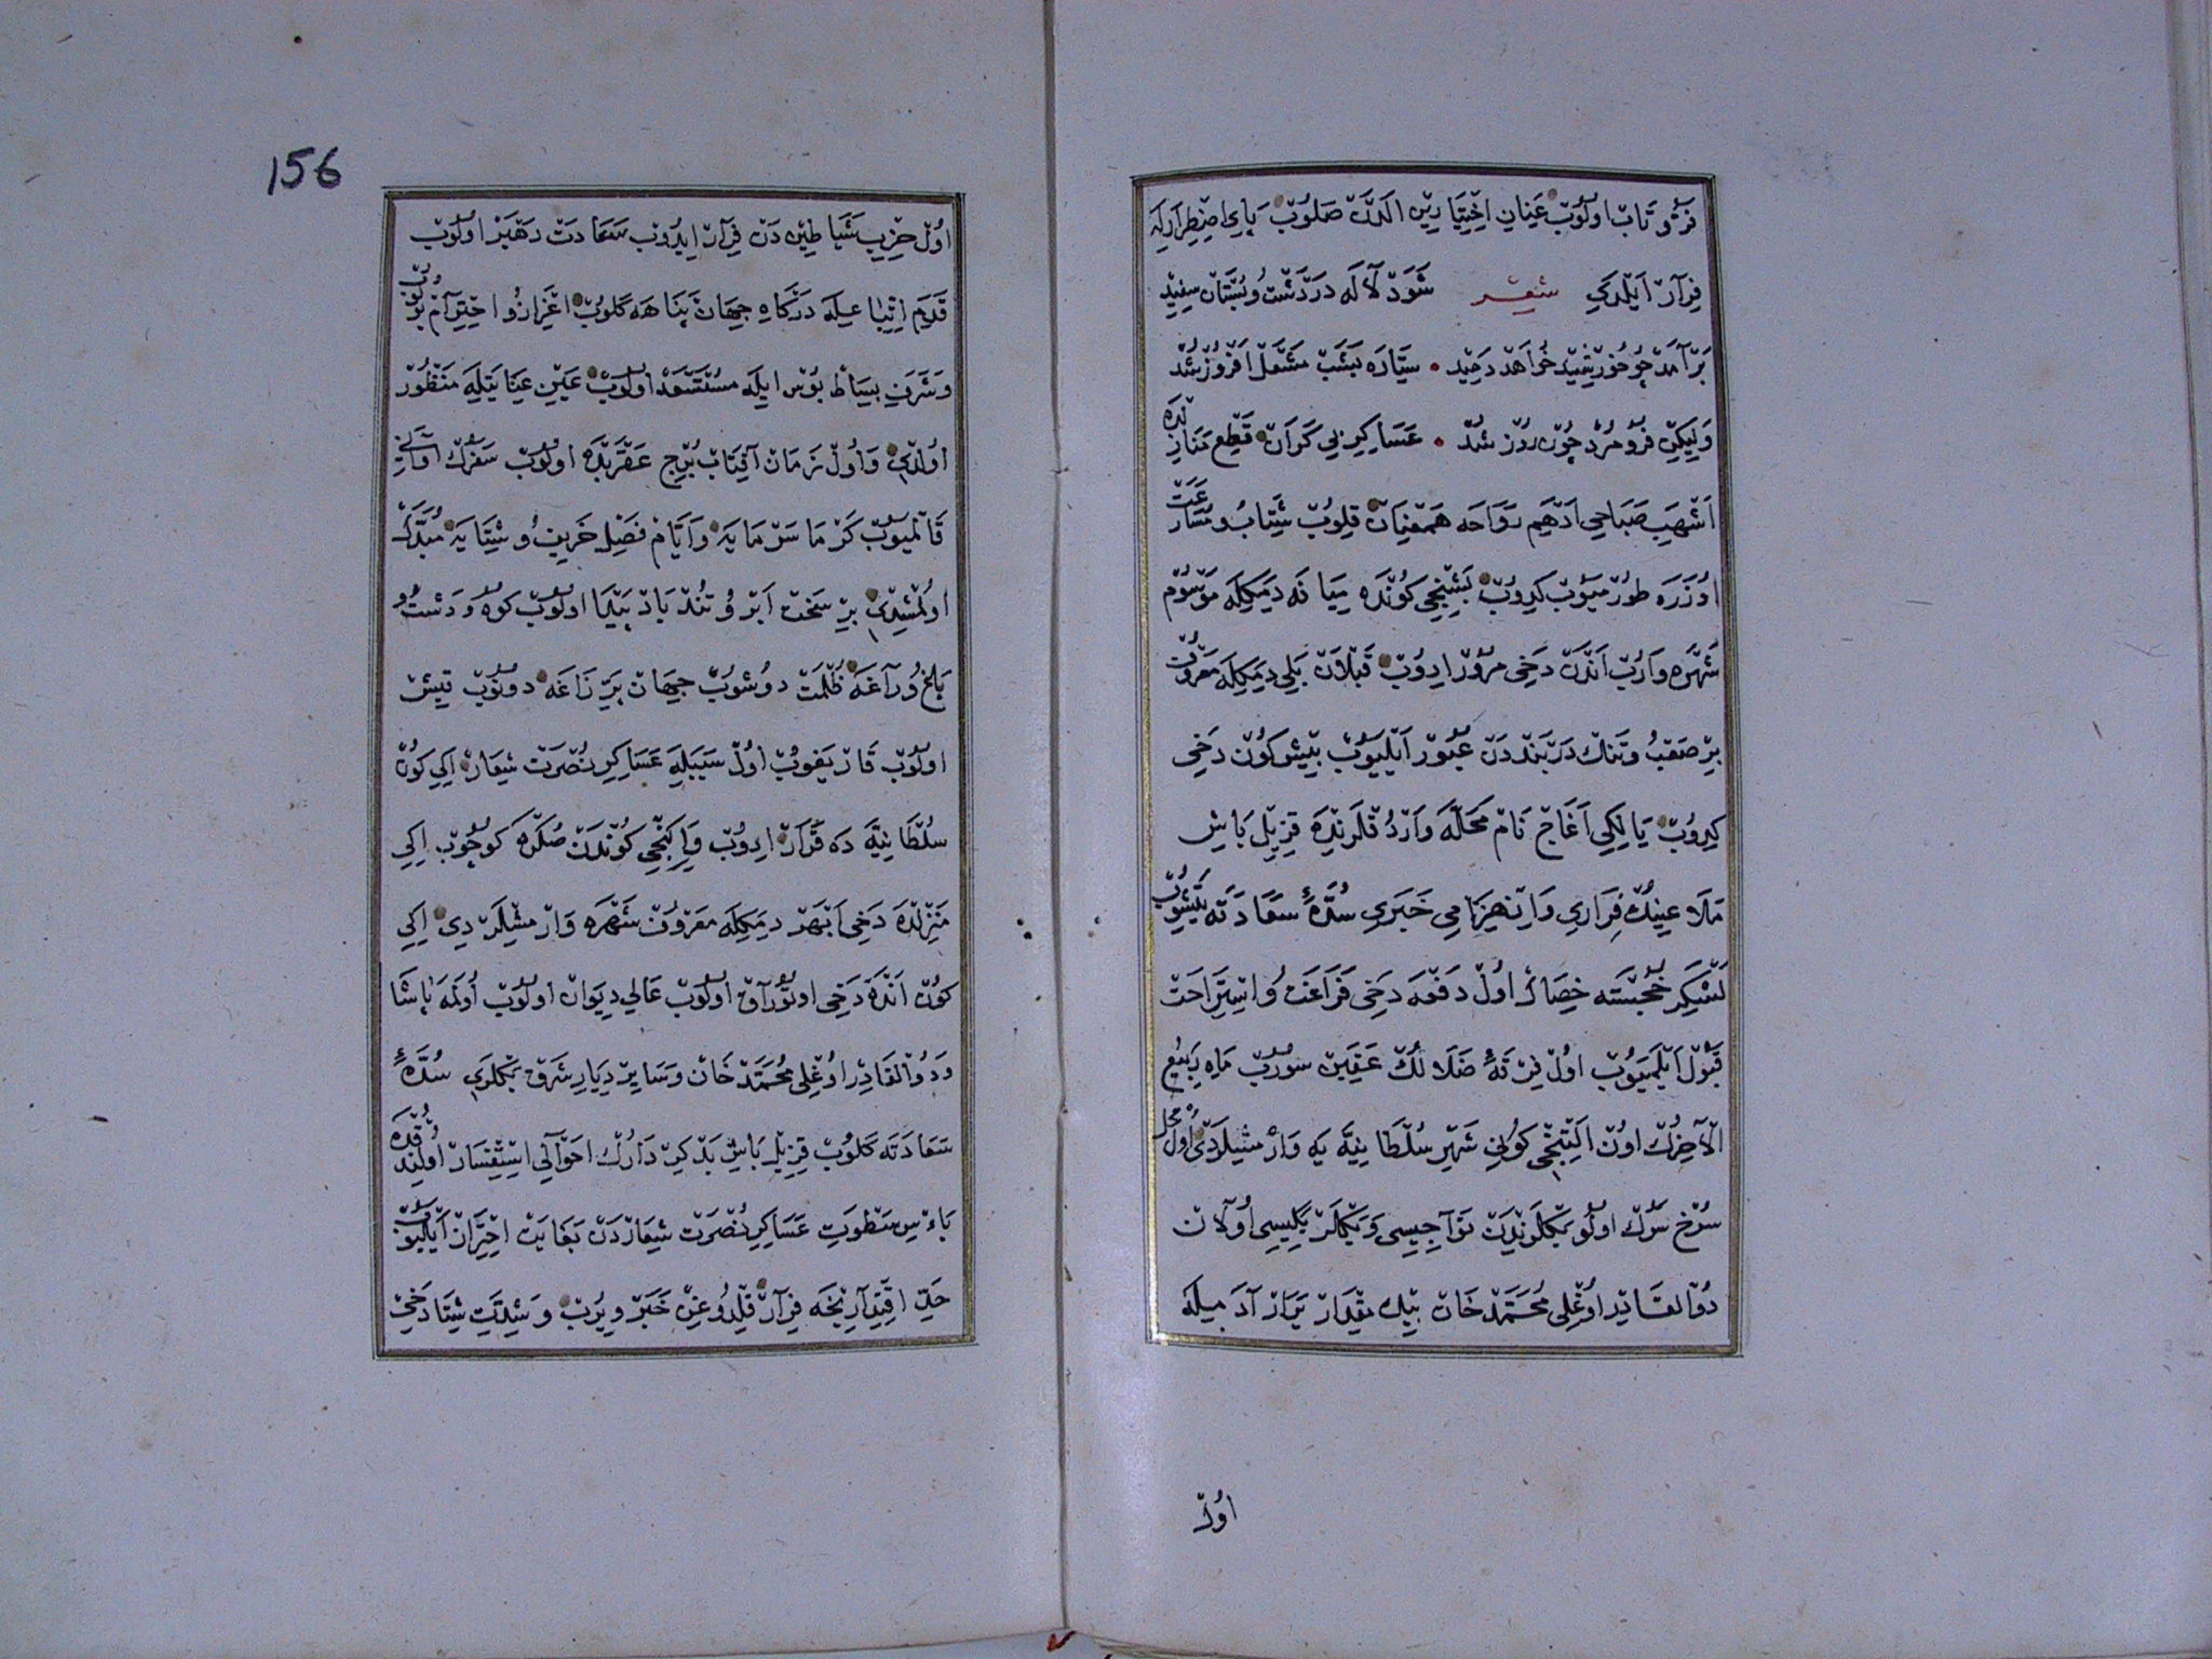 فرّ و تاب اولوب عنان اختيارين الدن صالوب پاى اضطرارله
فرار ايلدى شعر شود لاله در دشت و بستان سفيد
برآمد چو خورشيد خواهد دميد ستاره بشب مشعل افروز شد
وليكن فرو مرد چون روز شد عساكر بى كران قطع منازلده
اشهب صباحى ادهم رواحه همعنان قلوب شتاب و مسارعت
اوزره طورميوب كيدوب بشنجى كونده ميانه ديمكله موسوم
شهره واروب اندن دخى مرور ايدوب قپلان بلى ديمكله معروف
بر صعب و تنك دربنددن عبور ايليوب بيش كون دخى
كيدوب يالكى اغاج نام محله واردقلرنده قزيل باش
ملاعينك فرارى و انهزامى خبرى سدّۀ سعادته يتيشوب
لشكر خجسته خصائل اول دفعه دخى فراغت و استراحت
قبول ايلميوب اول فرقۀ ضلالك عقبن سوروب ماه ربيع
الآخرك اون التنجى كونى شهر سلطانيّه يه وارمشيلردى اول محل
سرخ سرك اولو بكلرندن تواجيسى و بكلر بكيسى اولان
ذو القادر اوغلى محمّد خان بيك مقدار يرار آدميله
اول
156
اول حزب شياطيندن فرار ايدوب سعادت رهبر اولوب
قدم اتباعيله دركاه جهان پناهه كلوب اعزاز و احترام بولوب
و شرف بساط بوس ايله مستسعد اولوب عين عنايتله منظور
اولدى و اول زمان آفتاب برج عقربده اولوب سفرك اوانى
قالميوب كرما سرمايه و ايّام فصل خريف و شتايه مبدّل
اولمشيدى بر سخت ابر و تند باد پيدا اولوب كوه و دشت و
باغ و راغه ظلمت دوشوب جهان پر زاغه دونوب قيش
اولوب قار يغوب اول سببله عساكر نصرت شعار ايكى كون
سلطانيّه ده قرار ايدوب و ايكنجى كوندن صكره كوچوب ايكى
منزلده دخى ابهر ديمكله معروف شهره وارمشلردى ايكى
كون انده دخى اوتوراق اولوب عالى ديوان اولوب اولمه پاشا
و ذو القادر اوغلى محمّد خان و ساير ديار شرق بكلرى سدّۀ
سعادته كلوب قزيل باش بدكردارك احوالى استفسار اولندقده
بأس سطوت عساكر نصرت شعاردن بغايت احتراز ايليوب
حدّ اقتدارنجه فرار قلدوغن خبر ويروب و شدّت شتا دخى